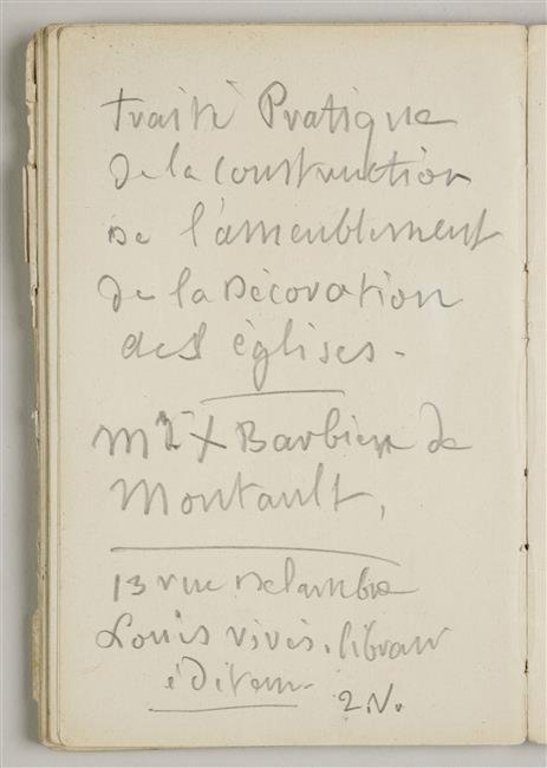 Traité Pratique
de la construction
de l'ameublement
de la Décoration
des églises.
Mgr X Barbier de
Montault,
13 rue Delambre
Louis vivès. libraire
éditeur.
2 N.